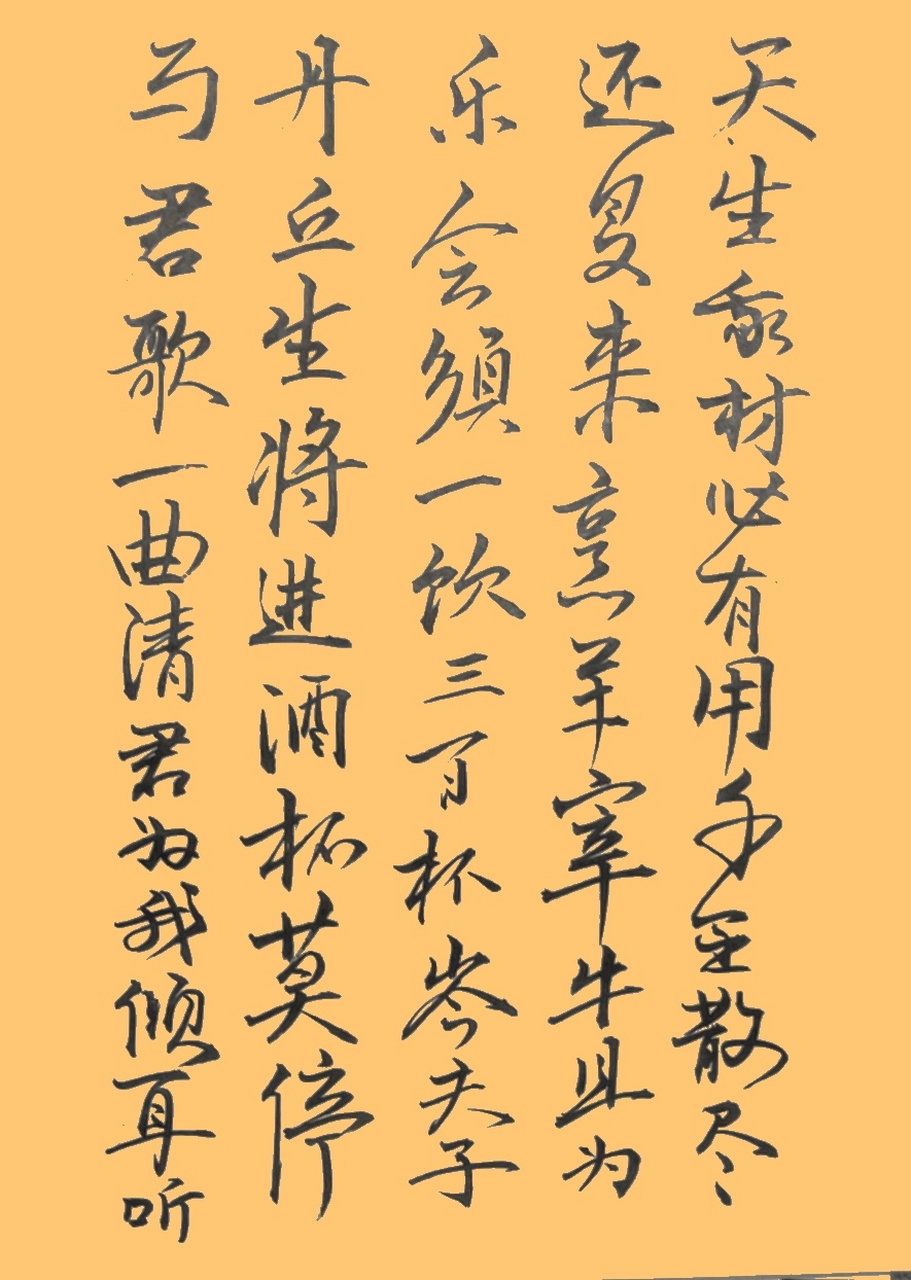 天生我材必有用千金散尽
还复来烹羊宰牛且为
乐会須一饮三百杯岑夫子
丹丘生将进酒杯莫停
与君歌一曲清君为我倾耳听